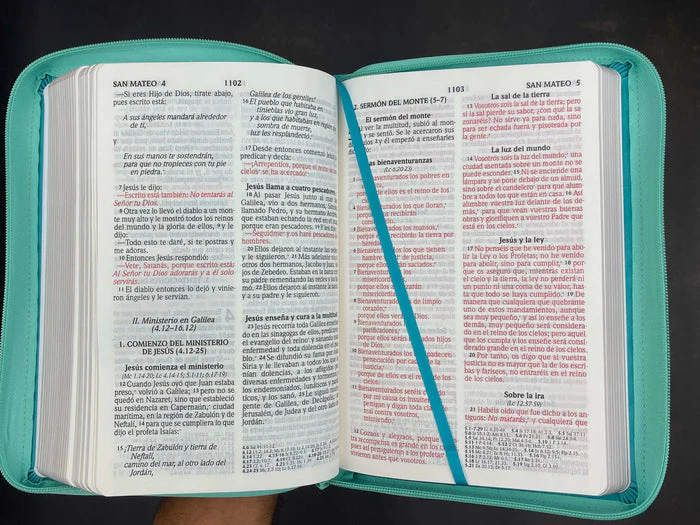 SAN MATEO 4
1102
—Si eres Hijo de Dios, tírate abajo,
pues escrito está:
A sus ángeles mandará alrededor
de ti,
y
En sus manos te sostendrán,
para que no tropieces con tu pie
en piedra.
7 Jesús le dijo:
—Escrito está también: No tentarás al
Señor tu Dios.
8 Otra vez lo llevó el diablo a un mon-
te muy alto y le mostró todos los reinos
del mundo y la gloria de ellos, 9 y le
dijo:
—Todo esto te daré, si te postras y
me adoras.
10 Entonces Jesús respondió:
—Vete, Satanás, porque escrito está:
Al Señor tu Dios adorarás y a él solo
servirás.
11 El diablo entonces lo dejó y vinie-
ron ángeles y le servían.
II. Ministerio en Galilea
(4.12–16.12)
1. COMIENZO DEL MINISTERIO
DE JESÚS (4.12-25)
Jesús comienza el ministerio
(Mc 1.14-20; Lc 4.14-15; 5.1-11; 6.17-19)
12 Cuando Jesús oyó que Juan estaba
preso, volvió a Galilea; 13 pero no se
quedó en Nazaret, sino que estableció
su residencia en Capernaún, ciudad
marítima, en la región de Zabulón y de
Neftalí, 14 para que se cumpliera lo que
dijo el profeta Isaías:
15 ¡Tierra de Zabulón y tierra de
Neftalí,
camino del mar, al otro lado del
Jordán,
Galilea de los gentiles!
16 El pueblo que habitaba en
tinieblas vio gran luz,
y a los que habitaban en región de
sombra de muerte,
luz les resplandeció.
17 Desde entonces comenzó Jesús a
predicar y decir:
—Arrepentíos, porque el reino de los
cielos se ha acercado.
Jesús llama a cuatro pescadores
18 Al pasar Jesús junto al mar de
Galilea, vio a dos hermanos, Simón,
llamado Pedro, y su hermano Andrés,
que estaban echando la red en el mar,
porque eran pescadores. 19 Les dijo:
—Seguidme y os haré pescadores de
hombres.
20 Ellos dejaron al instante las redes
y le siguieron. 21 Más adelante vio a
otros dos hermanos, Jacobo y Juan, hi-
jos de Zebedeo. Estaban en la barca con
su padre remendando las redes y los lla-
mó. 22 Ellos dejaron al instante la barca
y a su padre y le siguieron.
Jesús enseña y cura a la multitud
23 Jesús recorría toda Galilea enseñan-
do en las sinagogas de ellos, predicando
el evangelio del reino y sanando toda
enfermedad y toda dolencia en el pue-
blo. 24 Se difundió su fama por toda
Siria y le llevaban a todos los que te-
nían dolencias, a los afligidos por
diversas enfermedades y tormentos, a
los endemoniados, lunáticos y paralí-
ticos, y los sanó. 25 Le siguió mucha
gente de Galilea, de Decápolis, de
Jerusalén, de Judea y del otro lado del
Jordán.
1103
SAN MATEO 5
2. SERMÓN DEL MONTE (5–7)
El sermón del monte
al ver la multitud, subió al mon-
te y se sentó. Se le acercaron sus
y él empezó a enseñarles
Las bienaventuranzas
(Lc 6.20-23)
Bienaventurados los pobres en
porque de ellos es el reino de los
Bienaventurados los que lloran,
porque ellos recibirán
Bienaventurados los mansos,
porque ellos recibirán la tierra por
heredad.
Bienaventurados los que tienen
hambre y sed de justicia,
porque ellos serán saciados.
Bienaventurados los
misericordiosos,
porque ellos alcanzarán
misericordia.
Bienaventurados los de limpio
corazón,
porque ellos verán a Dios.
Bienaventurados los
pacificadores,
porque ellos serán llamados hijos
de Dios.
Bienaventurados los que padecen
persecución por causa de la
justicia,
porque de ellos es el reino de los
cielos.
11 Bienaventurados seréis cuando
por mi causa os insulten,
persigan y digan toda clase de
mal contra vosotros,
mintiendo.
12 Gozaos y alegraos, porque vues-
tra recompensa es grande en los cielos,
pues así persiguieron a los profetas que
fueron antes que vosotros.
La sal de la tierra
13 Vosotros sois la sal de la tierra; pero
si la sal pierde su sabor, ¿con qué la
sonaréis? No sirve ya para nada, sino
para ser echada fuera y pisoteada por
la gente.
La luz del mundo
14 Vosotros sois la luz del mundo; una
ciudad asentada sobre un monte no se
puede esconder. 15 Ni se enciende una
lámpara y se pone debajo de un almud,
sino sobre el candelero para que alum-
bre a todos los que están en casa. 16 Así
alumbre vuestra luz delante de los de-
más, para que vean vuestras buenas
obras y glorifiquen a vuestro Padre que
está en los cielos.
Jesús y la ley
17 No penséis que he venido para abo-
lir la Ley o los Profetas; no he venido
para abolir, sino para cumplir, 18 por-
que os aseguro que, mientras existan
el cielo y la tierra, la ley no perderá ni
un punto ni una coma de su valor, has-
ta que todo se haya cumplido. 19 De
manera que cualquiera que quebrante
uno de estos mandamientos, aunque
sea muy pequeño, y así lo enseñe a los
demás, muy pequeño será considera-
do en el reino de los cielos; pero aquel
que los cumpla y los enseñe será consi-
derado grande en el reino de los cielos.
20 Por tanto, os digo que si vuestra
justicia no es mayor que la de los escri-
bas y fariseos, no entraréis en el reino
de los cielos.
Sobre la ira
(Lc 12.57-59)
21 Habéis oído que fue dicho a los an-
tiguos: No matarás, y cualquiera que